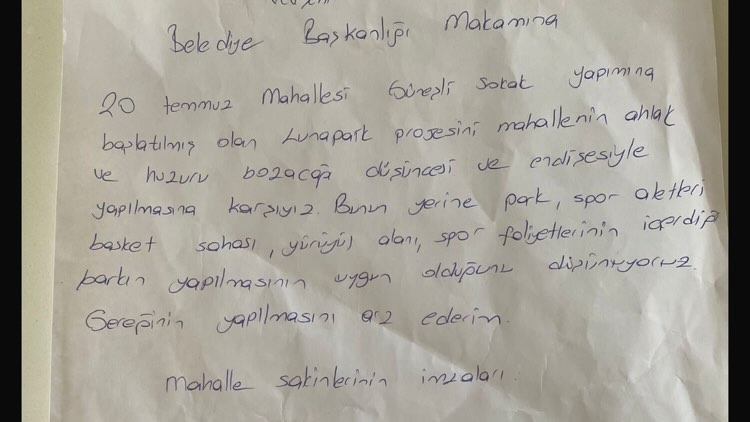 Belediye Başkanlığı Makamına
20 temmuz Mahallesi Güneşli sokak yapımına
başlatılmış olan Lunapark projesini mahallenin ahlak
ve huzuru bozacağı düşüncesi ve endişesiyle
yapılmasına karşıyız. Bunun yerine park, spor aletleri
basket sahası, yürüyüş alanı, spor foliyetlerinin içerdiği
parkın yapılmasının uygun olduğunu düşünüyoruz.
Gereğinin yapılmasını arz ederim.
Mahalle sakinlerinin imzaları